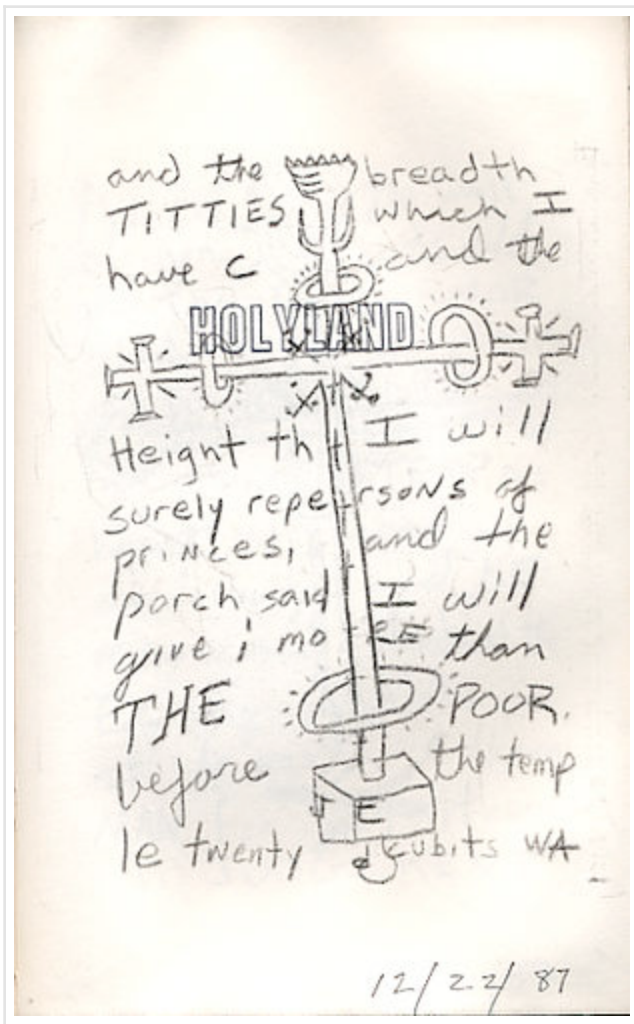 and the breadth
TITTIES which I
have C and the
HOLYLAND
Heignt th t I will
surely repe rsons of
princes, and the
porch said I will
give i mo RE than
THE POOR.
before the temp
E
le twenty cubits WA
12/22/87